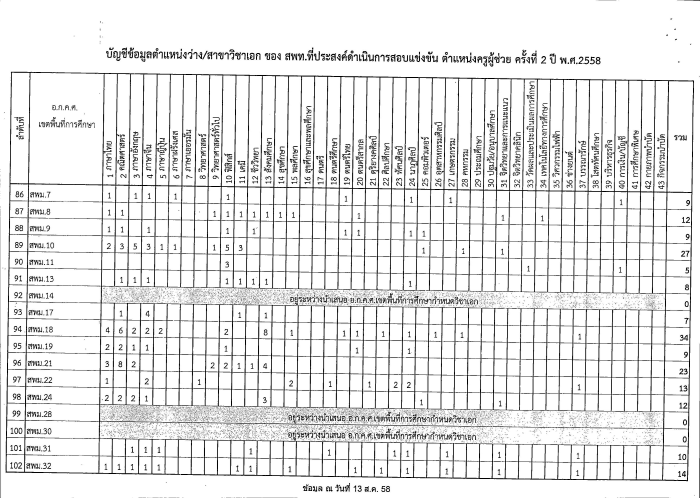 บัญชีข้อมูลตำแหน่งว่าง/สาขาวิชาเอก ของ สพท.ที่ประสงค์ดำเนินการสอบแข่งขัน ตำแหน่งครูผู้ช่วย ครั้งที่ 2 ปี พ.ศ.2558
ลำดับที่ อ.ก.ค.ศ. เขตพื้นที่การศึกษา 1 ภาษาไทย 2 คณิตศาสตร์ 3 ภาษาอังกฤษ 4 ภาษาจีน 5 ภาษาญี่ปุ่น 6 ภาษาฝรั่งเศส 7 ภาษาเยอรมัน 8 วิทยาศาสตร์ 9 วิทยาศาสตร์ทั่วไป 10 ฟิสิกส์ 11 เคมี 12 ชีววิทยา 13 สังคมศึกษา 14 สุขศึกษา 15 พลศึกษา 16 สุขศึกษาและพลศึกษา 17 ดนตรี 18 ดนตรีศึกษา 19 ดนตรีไทย 20 ดนตรีสากล 21 ดุริยางคศิลป์ 22 ศิลปศึกษา 23 ทัศนศิลป์ 24 นาฏศิลป์ 25 คอมพิวเตอร์ 26 อุตสาหกรรมศิลป์ 27 เกษตรกรรม 28 คหกรรม 29 ประถมศึกษา 30 ปฐมวัย/อนุบาลศึกษา 31 จิตวิทยาและการแนะแนว 32 จิตวิทยาคลินิก 33 วัดผลและประเมินผลการศึกษา 34 เทคโนโลยีทางการศึกษา 35 วิศวกรรมไฟฟ้า 36 ช่างยนต์ 37 บรรณารักษ์ 38 โสตทัศนศึกษา 39 บริหารธุรกิจ 40 การเงิน/บัญชี 41 การศึกษาพิเศษ 42 กายภาพบำบัด 43 กิจกรรมบำบัด รวม
86 สพม.7 1 1 1 1 1 1 1 1 9
87 สพม.8 1 1 1 1 1 1 1 1 1 1 1 1 12
88 สพม.9 1 1 1 1 1 1 1 1 1 9
89 สพม.10 2 3 5 3 1 1 1 5 3 1 1 1 27
90 สพม.11 3 1 1 5
91 สพม.13 1 1 1 1 1 1 1 1 8
92 สพม.14 อยู่ระหว่างนำเสนอ อ.ก.ค.ศ.เขตพื้นที่การศึกษากำหนดวิชาเอก 0
93 สพม.17 1 4 1 1 7
94 สพม.18 4 6 2 2 2 2 8 1 1 1 1 1 1 1 1 34
95 สพม.19 2 2 1 1 1 1 1 9
96 สพม.21 3 8 2 2 2 1 1 4 23
97 สพม.22 1 2 1 2 1 1 2 2 1 13
98 สพม.24 2 2 2 1 3 1 1 12
99 สพม.28 อยู่ระหว่างนำเสนอ อ.ก.ค.ศ.เขตพื้นที่การศึกษากำหนดวิชาเอก 0
100 สพม.30 อยู่ระหว่างนำเสนอ อ.ก.ค.ศ.เขตพื้นที่การศึกษากำหนดวิชาเอก 0
101 สพม.31 1 1 1 1 1 1 1 1 1 1 10
102 สพม.32 1 1 1 1 1 1 1 1 1 1 1 1 1 1 14
ข้อมูล ณ วันที่ 13 ส.ค. 58